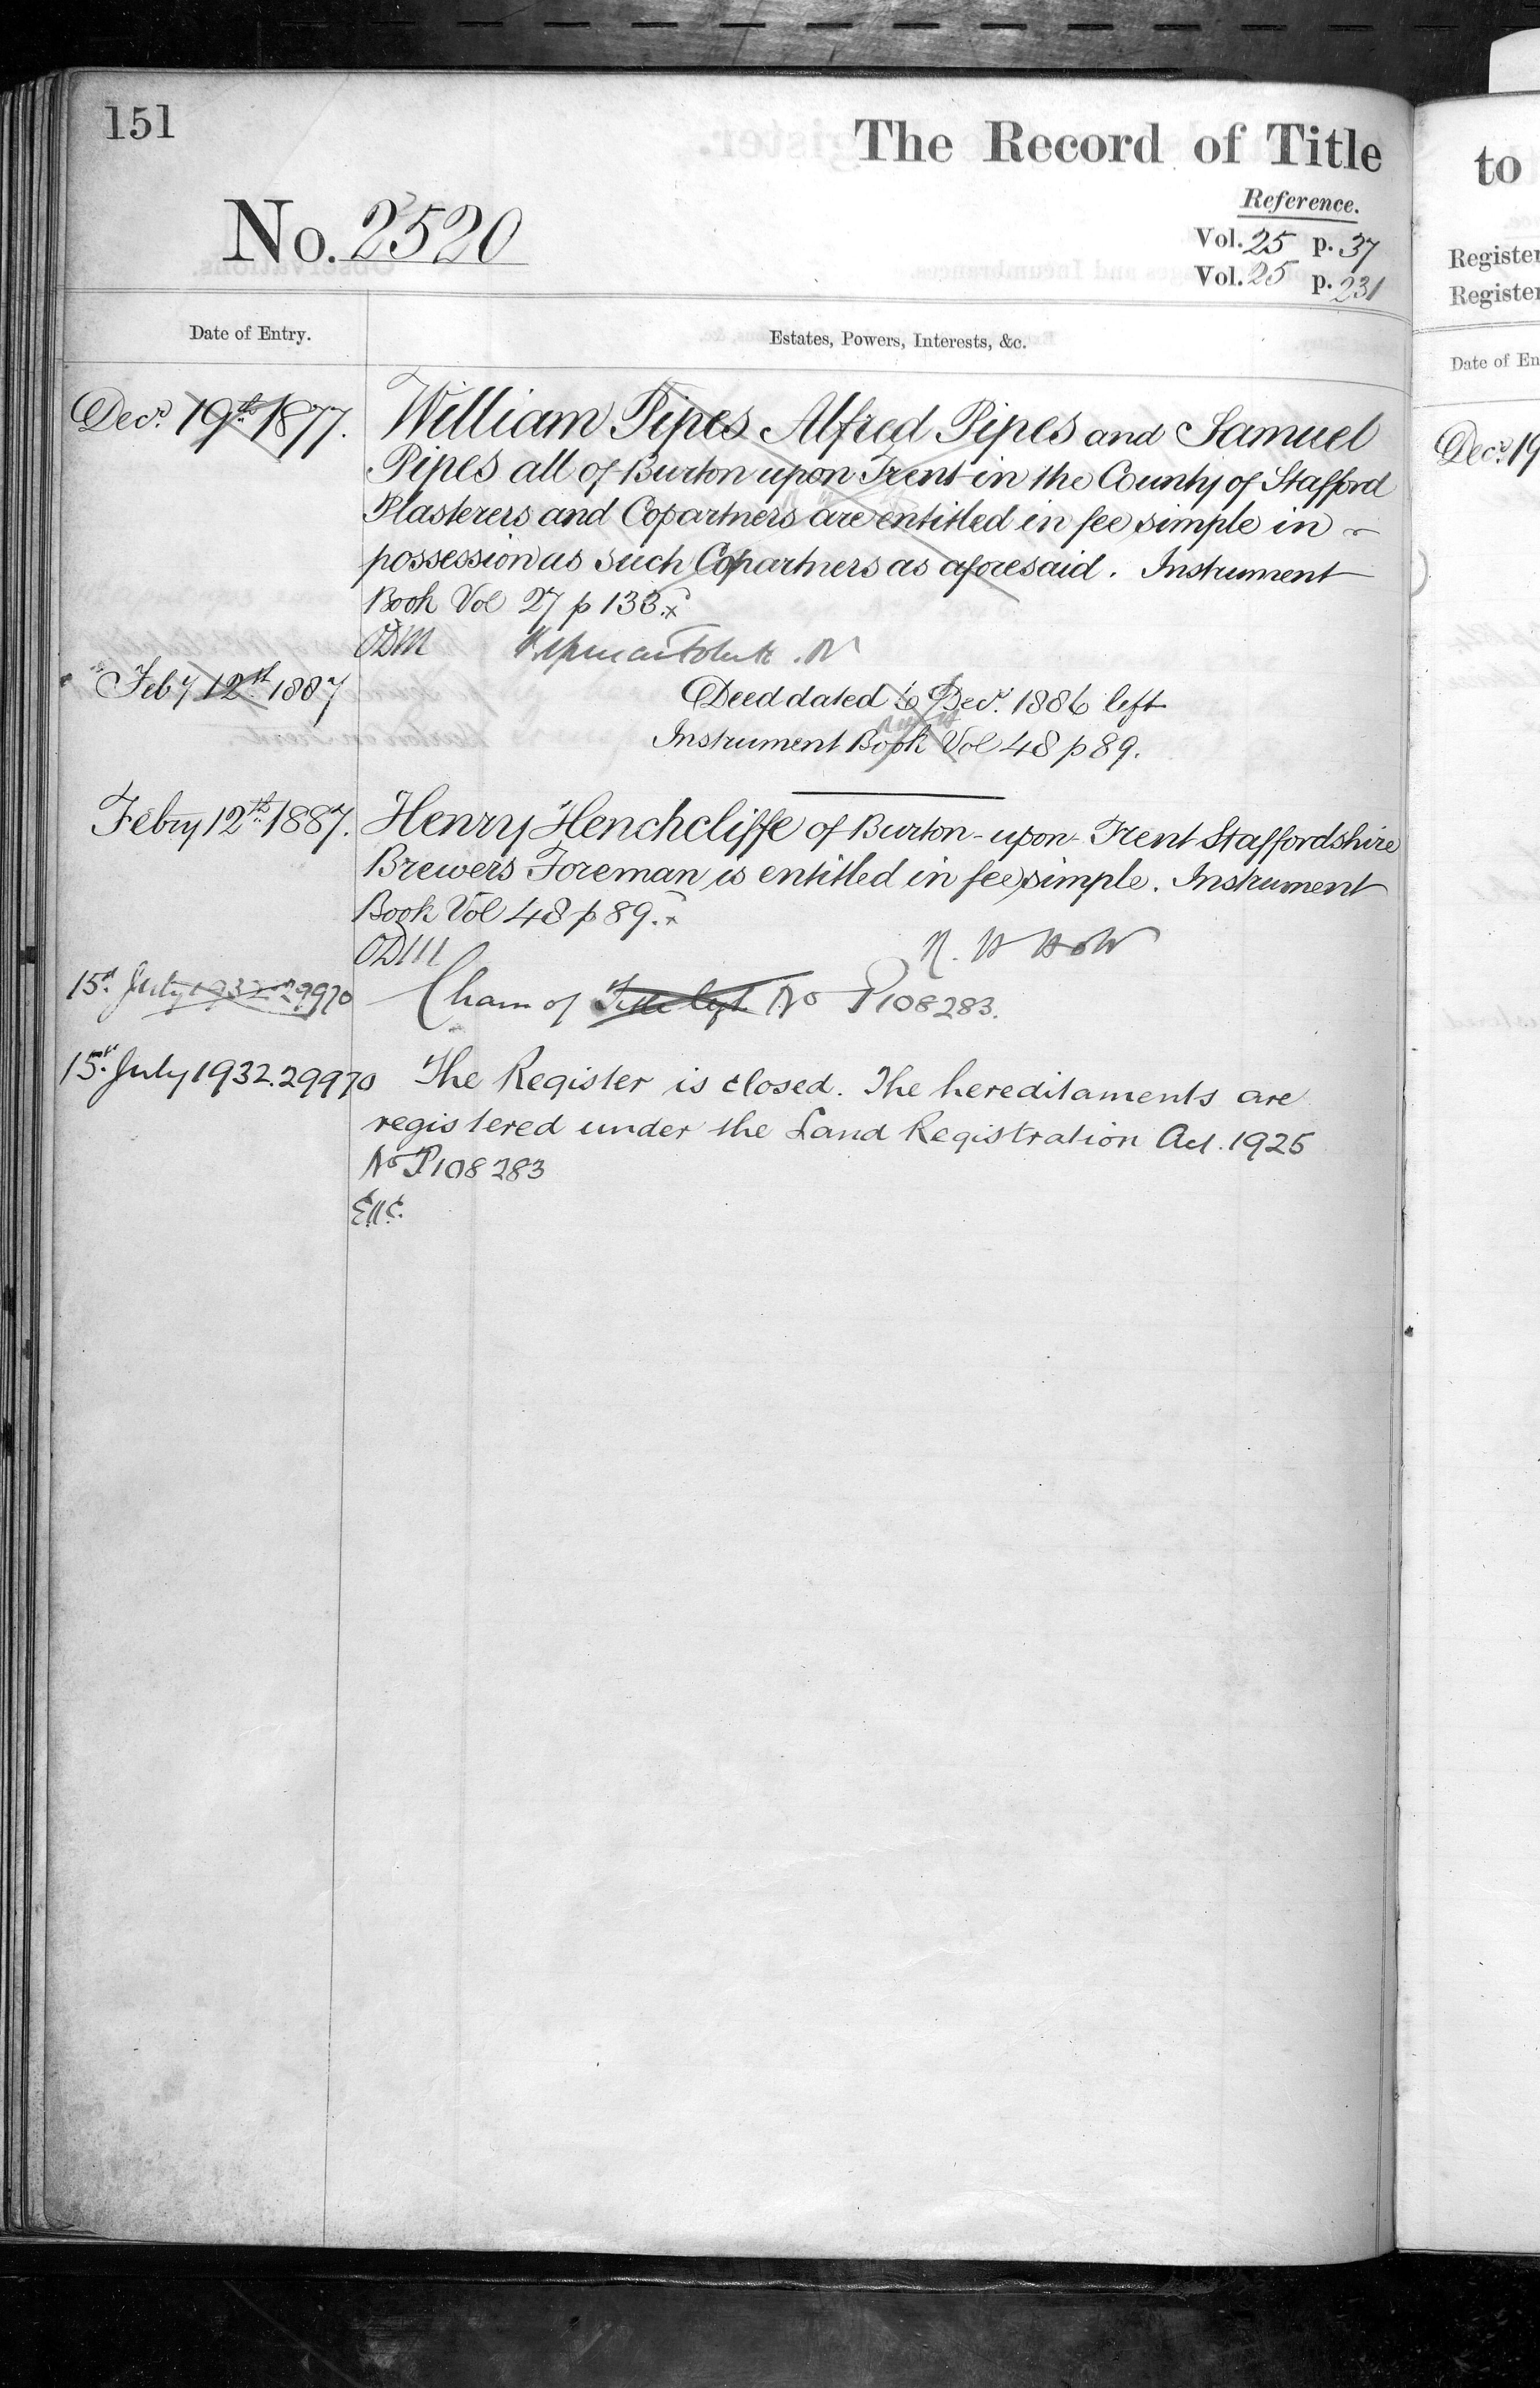 151
The Record of Title
No. 2520
Reference.
Vol. 25 p. 37
Vol. 25 p. 231
Date of Entry.
Estates, Powers, Interests, &c.
Decr. 19th 1877.
William Pipes Alfred Pipes and Samuel
Pipes all of Burton upon Trent in the County of Stafford
Plasterers and Copartners are entitled in fee simple in
possession as such Copartners as aforesaid. Instrument
Book Vol 27 p 133.
Feby 12th 1887
Deed dated 6 Decr. 1886 left
Instrument Book Vol 48 p 89.
Febry 12th 1887.
Henry Henchcliffe of Burton-upon-Trent Staffordshire
Brewers Foreman is entitled in fee simple. Instrument
Book Vol 48 p 89.
15th July 1932 29970
of Title No P108283.
15th July 1932. 29970
The Register is closed. The hereditaments are
registered under the Land Registration Act. 1925
No P108283
to
Register
Register
Date of En
Decr. 19